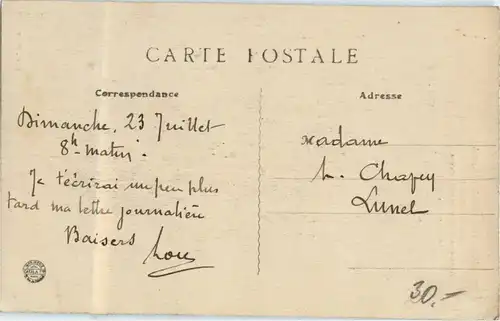 CARTE POSTALE
Correspondance
Dimanche, 23 Juillet
8h matin.
Je t'écrirai un peu plus
tard ma lettre journalière
Baisers Lou
Adresse
Madame
Lunel
30.-